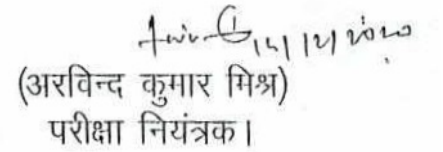 14/12/2020
(अरविन्द कुमार मिश्र)
परीक्षा नियंत्रक।